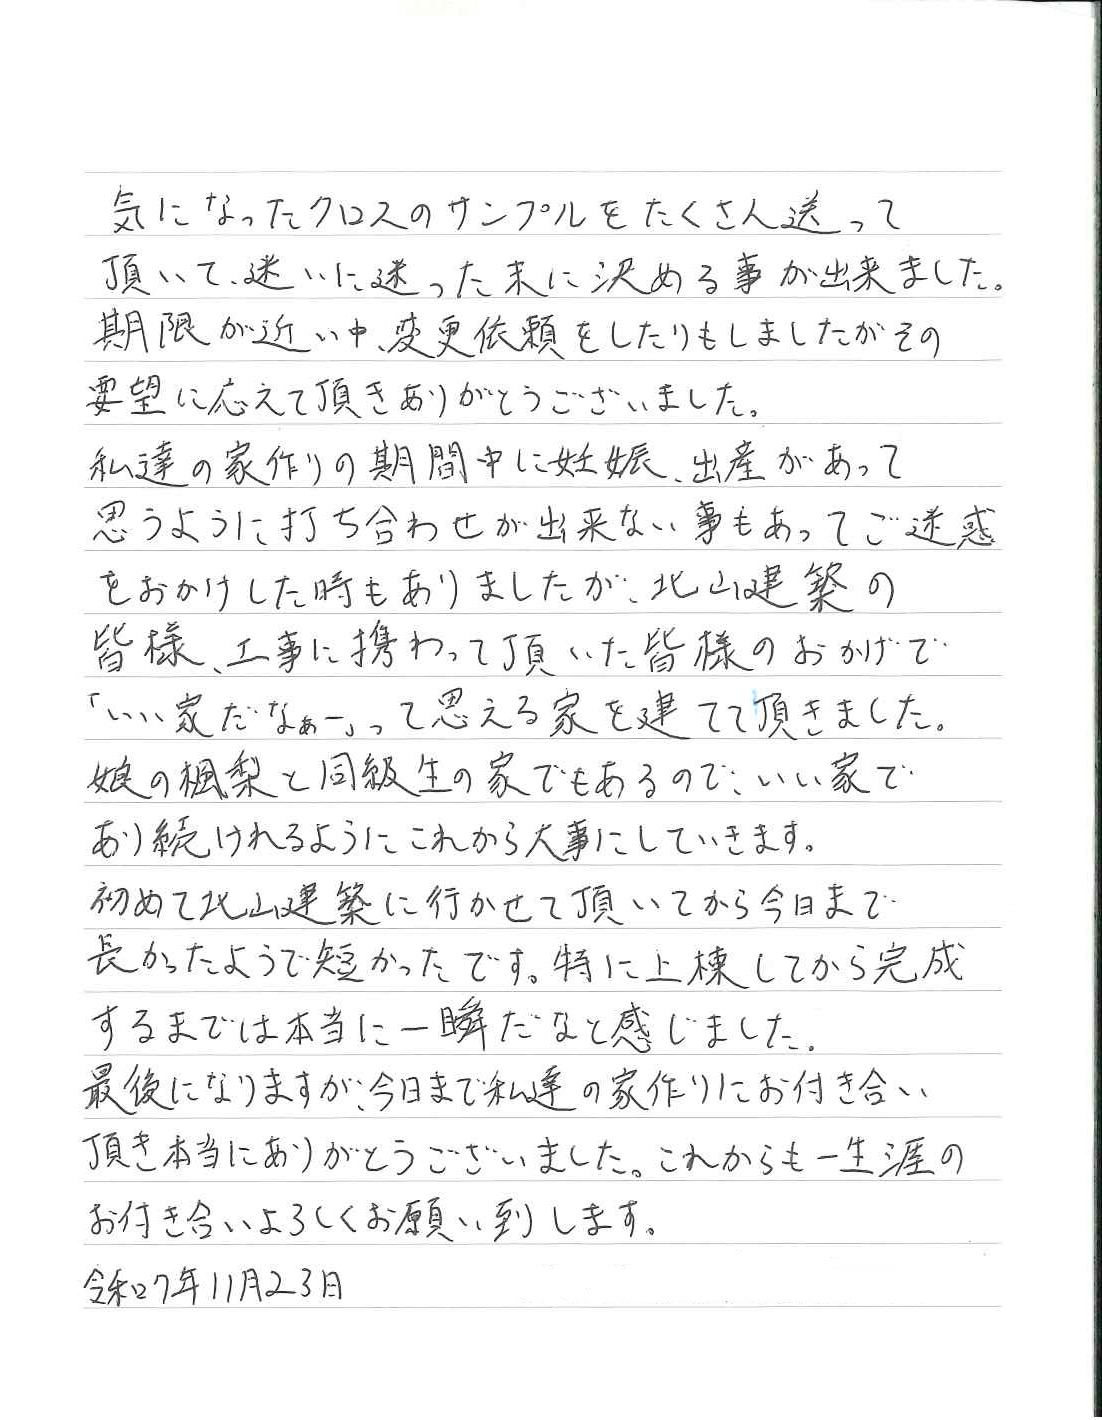 気になったクロスのサンプルをたくさん送って
頂いて、迷いに迷った末に決める事が出来ました。
期限が近い中、変更依頼をしたりもしましたがその
要望に応えて頂きありがとうございました。
私達の家作りの期間中に妊娠、出産があって
思うように打ち合わせが出来ない事もあってご迷惑
をおかけした時もありましたが、北山建築の
皆様、工事に携わって頂いた皆様のおかげで
「いい家だなぁー」って思える家を建てて頂きました。
娘の楓梨と同級生の家でもあるので、いい家で
あり続けれるようにこれから大事にしていきます。
初めて北山建築に行かせて頂いてから今日まで
長かったようで短かったです。特に上棟してから完成
するまでは本当に一瞬だなと感じました。
最後になりますが、今日まで私達の家作りにお付き合い
頂き本当にありがとうございました。これからも一生涯の
お付き合いよろしくお願い到します。
令和7年11月23日